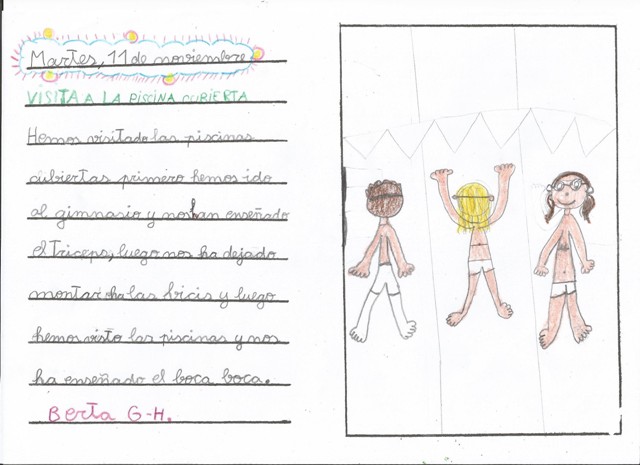 Martes, 11 de noviembre
VISITA A LA PISCINA CUBIERTA
Hemos visitado las piscinas
cubiertas primero hemos ido
al gimnasio y nos han enseñado
el triceps, luego nos ha dejado
montar a las bicis y luego
hemos visto las piscinas y nos
ha enseñado el boca boca.
Berta G-H.